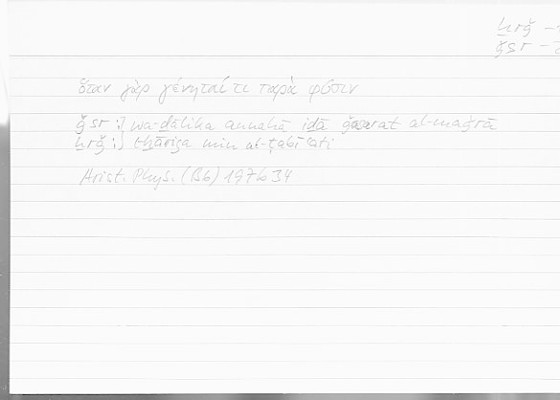 ḫrǧ –
ǧsr –
ὅταν γὰρ γένηταί τι παρὰ φύσιν
ǧsr :) wa-ḏālika annahā iḏā al-maǧrā
ḫrǧ :) min al-ṭabīʿati
Arist. Phys. (B6) 197b34